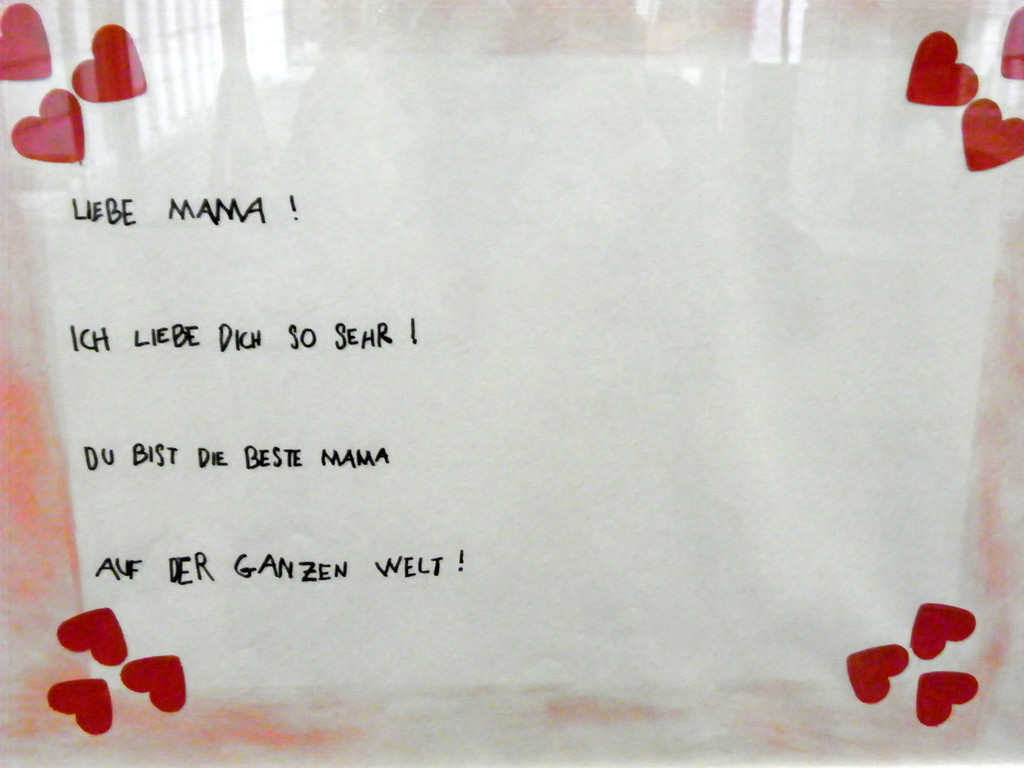 LIEBE MAMA !
ICH LIEBE DICH SO SEHR !
DU BIST DIE BESTE MAMA
AUF DER GANZEN WELT !